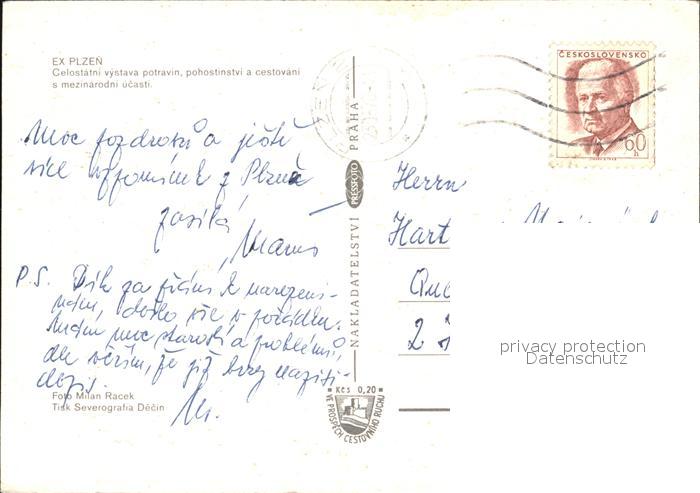 EX PLZEŇ
Celostátní výstava potravin, pohostinství a cestování
s mezinárodní účastí.
Moc pozdravů a ještě
více vzpomínek z Plzně
zasílá
P.S. Dík za přání k narozeni-
nám, došlo vše v pořádku.
Mám moc starostí a problémů,
ale věřím, že již brzy
Ms.
Foto Milan Racek
Tisk Severografia Děčín
NAKLADATELSTVÍ PRESSFOTO PRAHA
Kčs 0,20
VE PROSPĚCH CESTOVNÍHO RUCHU
ČESKOSLOVENSKO
60
h
Herrn
Hart
2
privacy protection
Datenschutz